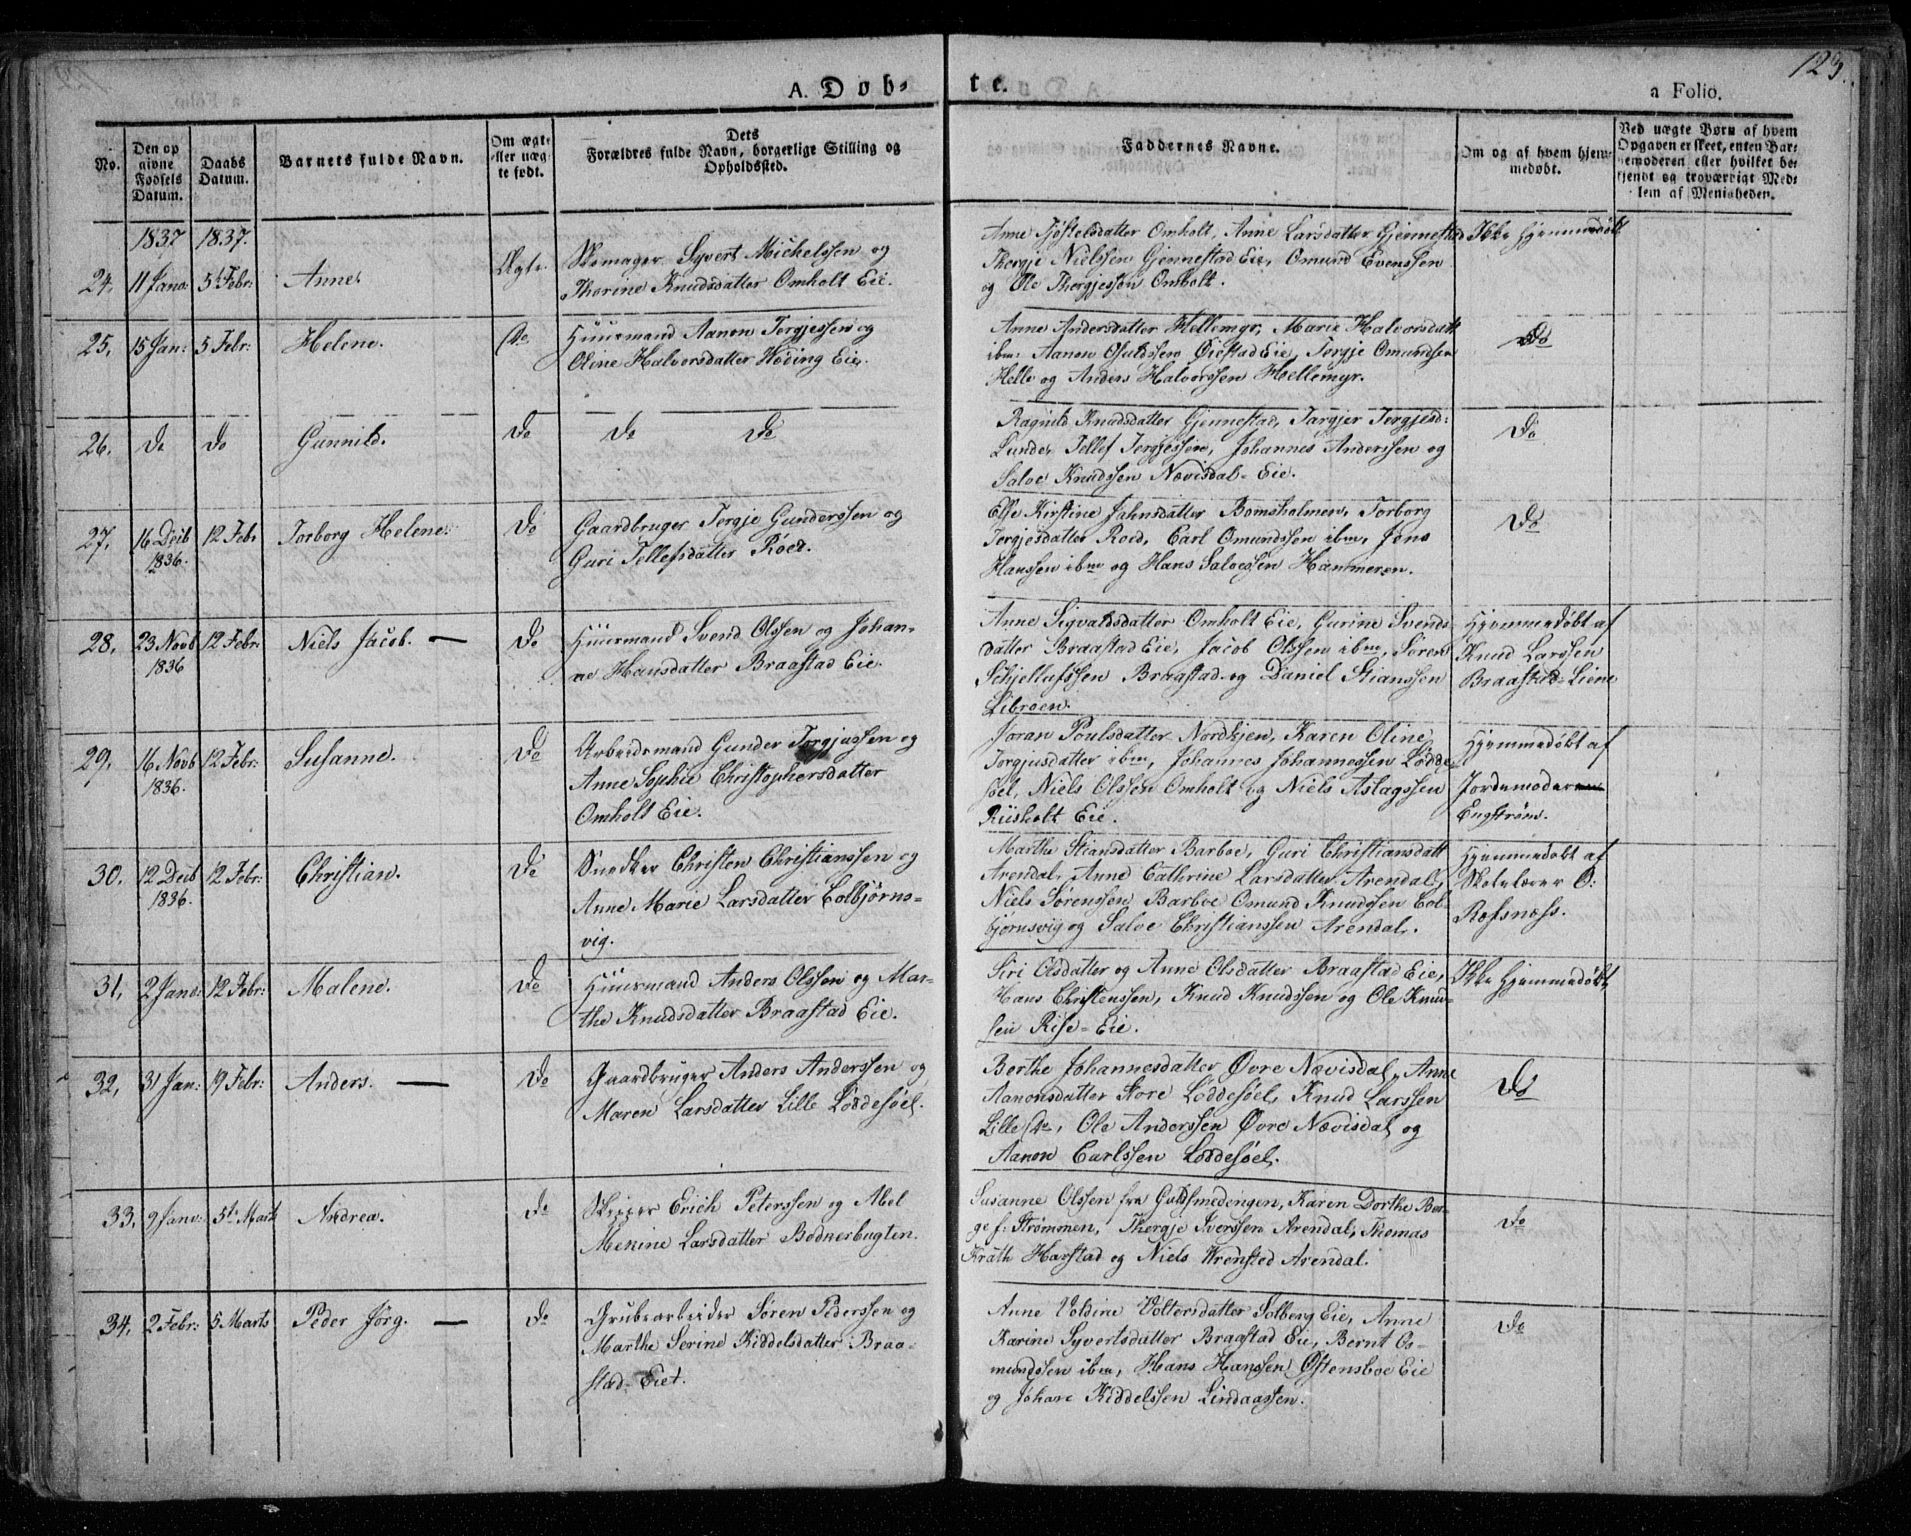 123.
A. Døb-
te.
a Folio.
No.
Den op
givne
Fødsels
Datum.
Daabs
Datum.
Barnets fulde Navn.
Om ægte
eller uæg-
te født.
Dets
Forældres fulde Navn, borgerlige Stilling og
Opholdssted.
Faddernes Navne.
Om og af hvem hjem-
medøbt.
Ved uægte Børn af hvem
Opgaven er skeet, enten Bar-
nemoderen eller hvilket be-
kjendt og troværdigt Med-
lem af Menigheden.
1837 1837.
24. 11 Janv: 5t Febr: Anne. Ægte.
Skomager Syvert Michelssen og
Thorine Knudsdatter Omholt Eie.
Anne Tjøstelsdatter Omholt, Anne Larsdatter Gjennestad
Thergje Nielssen Gjennestad Eie, Omund Evenssen
og Ole Thergjessen Omholt.
Ikke Hjemmedøbt
25. 15 Jan: 5 Febr: Helene. Do
Huurmand Aanon Tergjessen og
Oline Halvorsdatter Høding Eie.
Anne Andersdatter Hellemyr, Marie Halvorsdatt
ibm: Aanon Osuldssen Øiestad Eie, Tergje Omundsen
Helle og Anders Halvorssen Hellemyr.
Do
26. Do Do Gunnild. Do Do Do
Ragnild Knudsdatter Gjennestad, Targjer Tergjesd:
Lunde, Tellef Tergjessen, Johannes Anderssen og
Salve Knudssen Nævisdal-Eie.
Do
27. 16 Decb 1836. 12 Febr Torborg Helene. Do
Gaardbruger Tergje Gunderssen og
Guri Tellefsdatter Røed.
Else Kirstine Jahnsdatter Bomsholmen, Torborg
Tergjesdatter Roed, Carl Omundssen ibm, Jens
Hanssen ibm og Hans Salvessen Hammeren.
Do
28. 23 Novb 1836 12 Febr: Niels Jacob. — Do
Huurmand Svend Olssen og Johan-
ne Hansdatter Braastad Eie.
Anne Sigvaldsdatter Omholt Eie, Gurine Svends-
datter Braastad Eie, Jacob Olssen ibm, Søren
Schjellufssen Braastad og Daniel Stianssen
Libroen.
Hjemmedøbt af
Knud Larssen
Braastad-Liene
29. 16 Novb 1836. 12 Febr: Susanne. Do
Arbeidsmand Gunder Torgjussen og
Anne Sophie Christophersdatter
Omholt Eie.
Joran Poulsdatter Nordkjen, Karen Oline
Torgjusdatter ibm, Johannes Johannessen Lødde-
søel, Niels Olssen Omholt og Niels Aslagssen
Riisholt Eie.
Hjemmedøbt af
Jordemoder
Engstrøm.
30. 12 Decb 1836. 12 Febr: Christian. Do
Snedker Christen Christianssen og
Anne Marie Larsdatter Colbjørns-
vig.
Marthe Stiansdatter Barboe, Guri Christiansdatt
Arendal, Anne Cathrine Larsdatter Arendal,
Niels Sørenssen Barboe Omund Knudssen Col-
bjørnsvig og Salve Christianssen Arendal.
Hjemmedøbt af
Skolelærer O:
Rosnæss.
31. 2 Janv: 12 Febr: Malene. Do
Huurmand Anders Olssen og Mar-
the Knudsdatter Braastad Eie.
Siri Olsdatter og Anne Olsdatter Braastad Eie,
Hans Christenssen, Knud Knudssen og Ole Knud-
sen Rise-Eie.
Ikke Hjemmedøbt
32. 31 Jan: 19 Febr: Anders. — Do
Gaardbruger Anders Anderssen og
Maren Larsdatter Lille Løddesøel.
Berthe Johannesdatter Øvre Nævisdal, Anne
Aanonsdatter Store Løddesøel, Knud Larssen
Lille Do, Ole Anderssen Øvre Nævisdal og
Aanon Carlssen Løddesøel.
Do
33. 9 Janv: 5t Marts Andrea. Do
Skipper Erich Peterssen og Abel
Mekine Larsdatter Bodnerbugten.
Susanne Olssen fra Guldsmedengen, Karen Dorthe Ber-
ge f: Strømmen, Thergje Iverssen Arendal, Thomas
Krath Harstad og Niels Wrensted Arendal.
Do
34. 2 Febr: 5 Marts Peder Jørg. — Do
Grubearbeider Søren Pederssen og
Marthe Serine Kiddelsdatter Braa-
stad-Eiet.
Anne Voldine Voltersdatter Solberg Eie, Anne
Karine Syvertsdatter Braastad Eie, Bernt Os-
mundssen ibm, Hans Hanssen Østensboe Eie
og Johan Kiddelssen Lindaassen.
Do